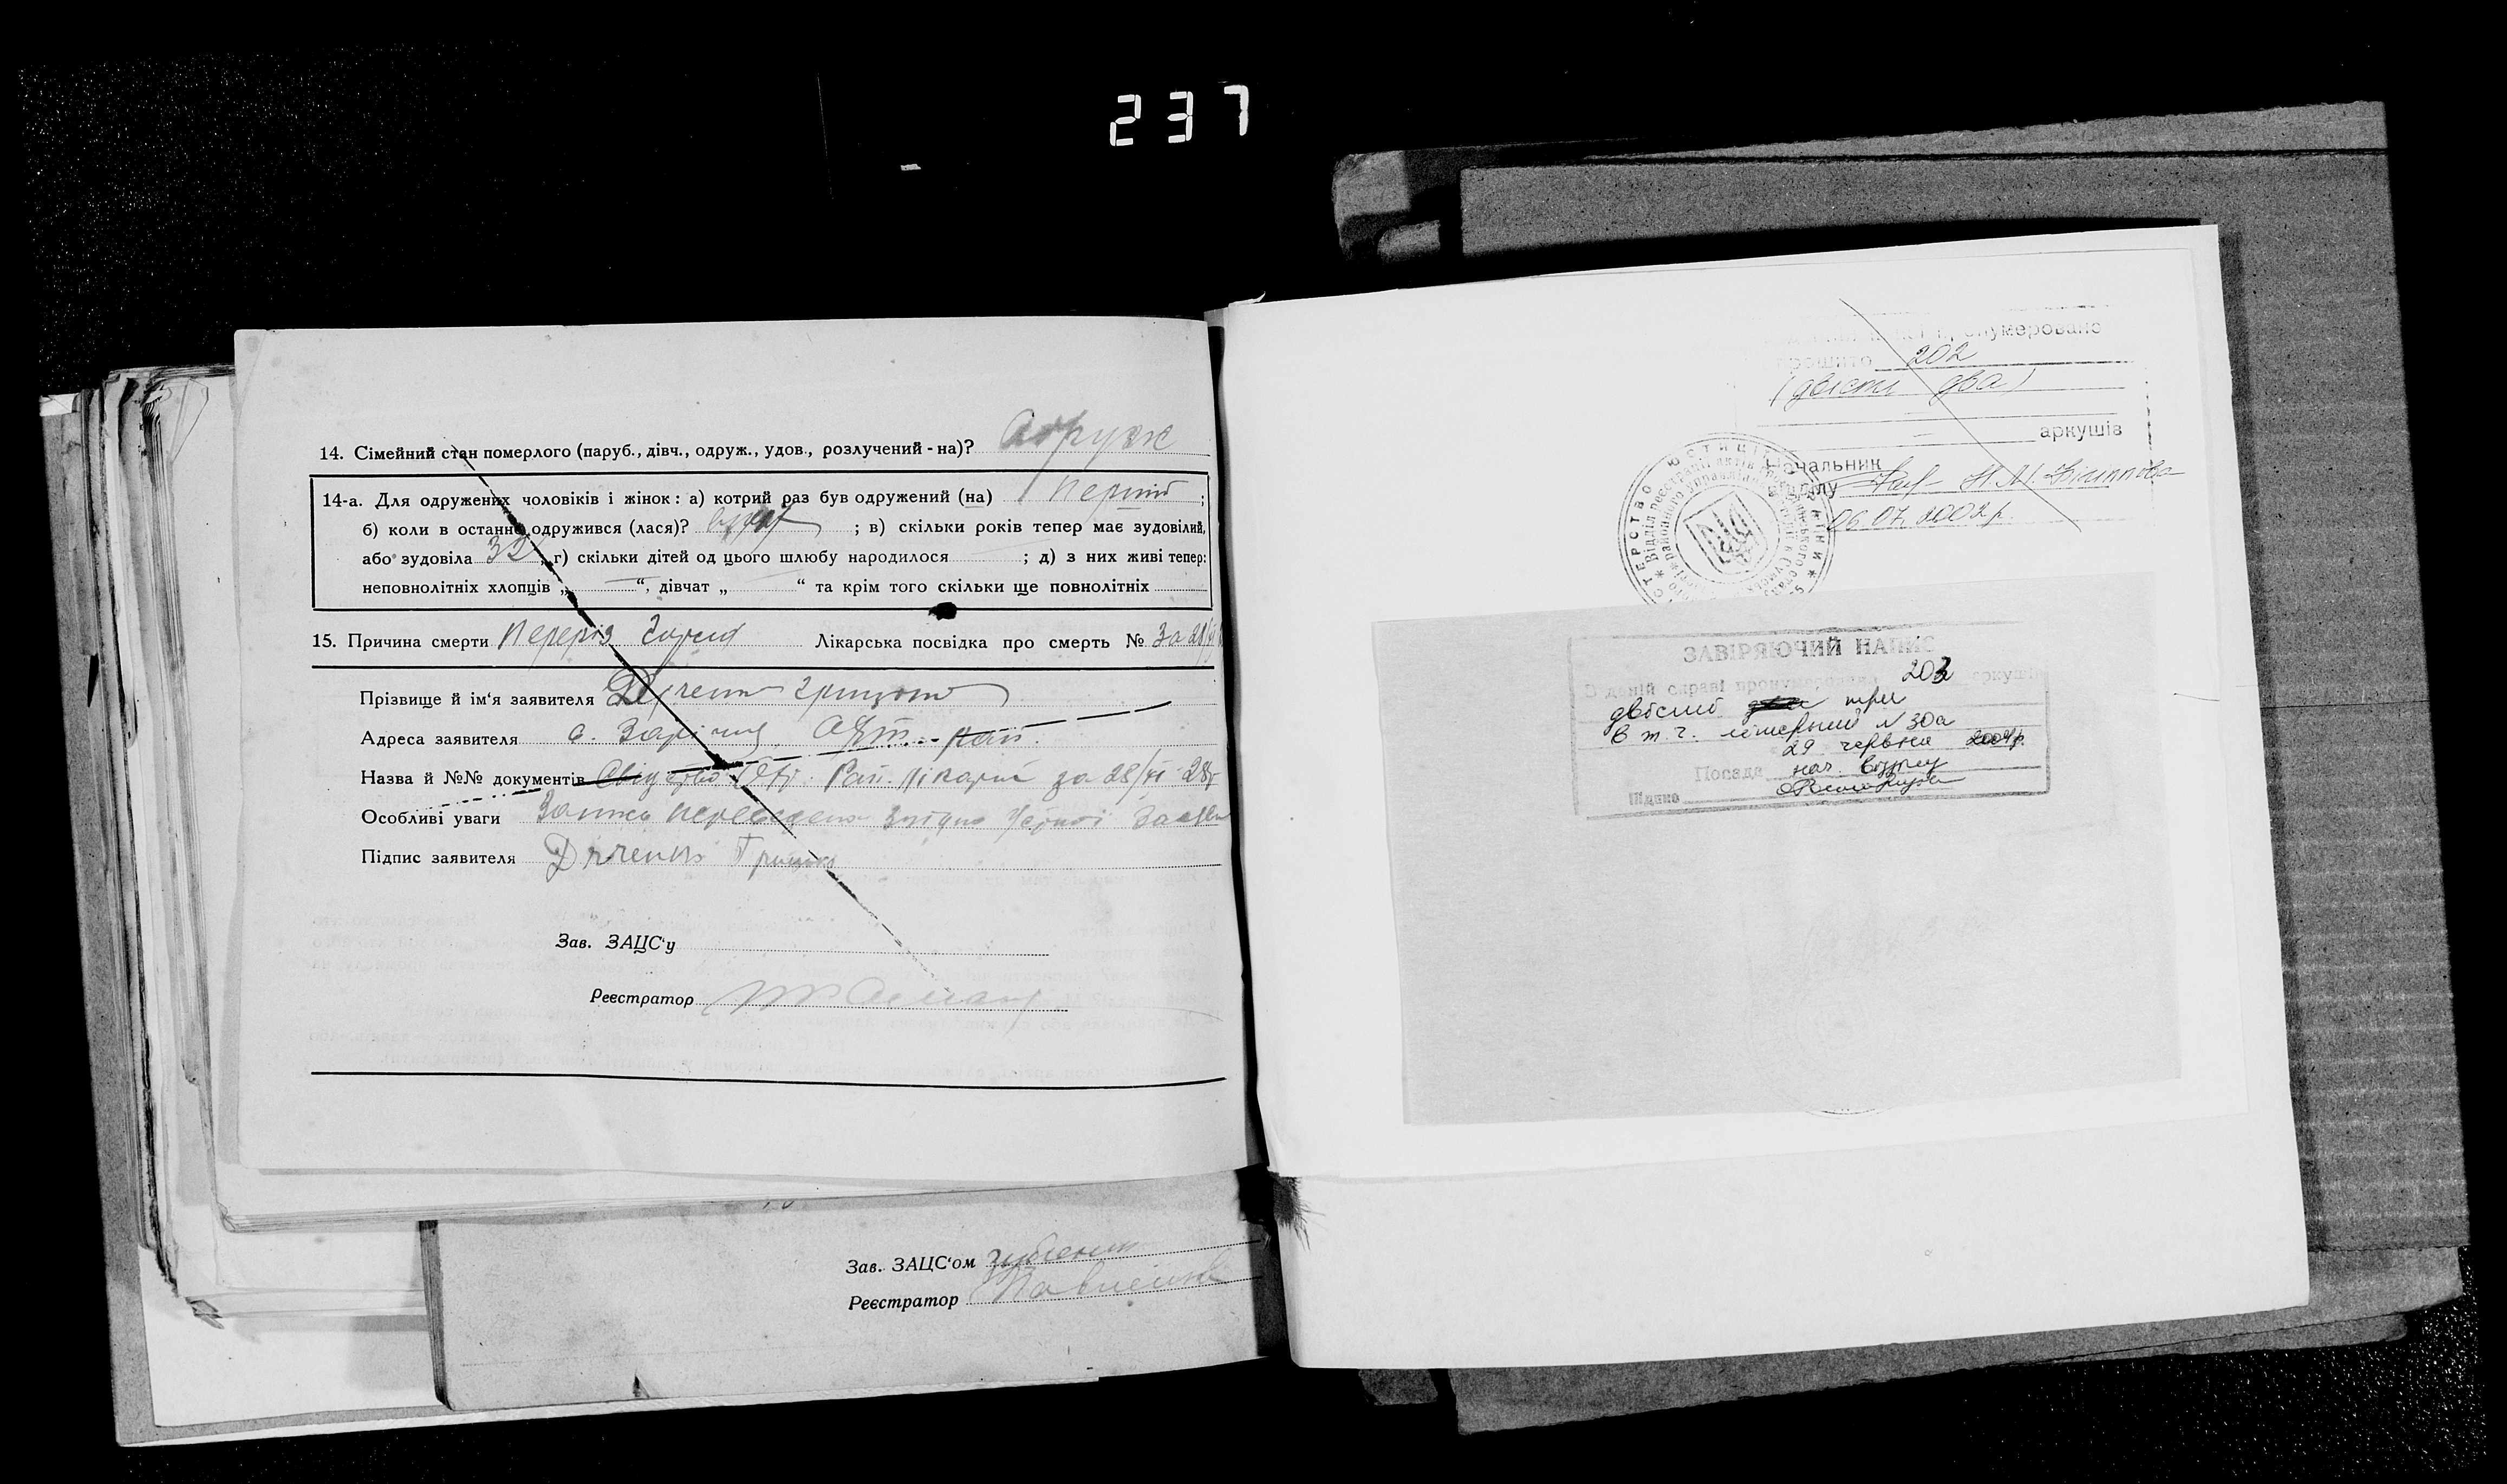 237
14. Сімейний стан померлого (паруб., дівч., одруж., удов., розлучений - на)? Одруж
14-а. Для одружених чоловіків і жінок: а) котрий раз був одружений (на) перший;
б) коли в останнє одружився (лася)? ; в) скільки років тепер має зудовілий,
або зудовіла 32, г) скільки дітей од цього шлюбу народилося ; д) з них живі тепер:
неповнолітніх хлопців „ “, дівчат „ “ та крім того скільки ще повнолітніх
15. Причина смерти Переріз горла Лікарська посвідка про смерть № За 28/VI
Прізвище й ім'я заявителя Дяченко Грицько
Адреса заявителя с. рай.
Назва й №№ документів Рай. лікарні за 28/VI 28р
Особливі уваги Запис переведено згідно
Підпис заявителя Дяченко Грицько
Зав. ЗАЦС'у
Реєстратор
Зав. ЗАЦС'ом
Реєстратор
пронумеровано
прошито 202
(двісти два)
аркушів
Начальник
відділу Н.М. Філіппова
06.07.2002р.
ЗАВІРЯЮЧИЙ НАПИС
В даній справі пронумеровано 203 аркушів
двісті три
в т.ч. літерний N 30а
29 червня 2004р.
Посада нач. відділу
Підпис